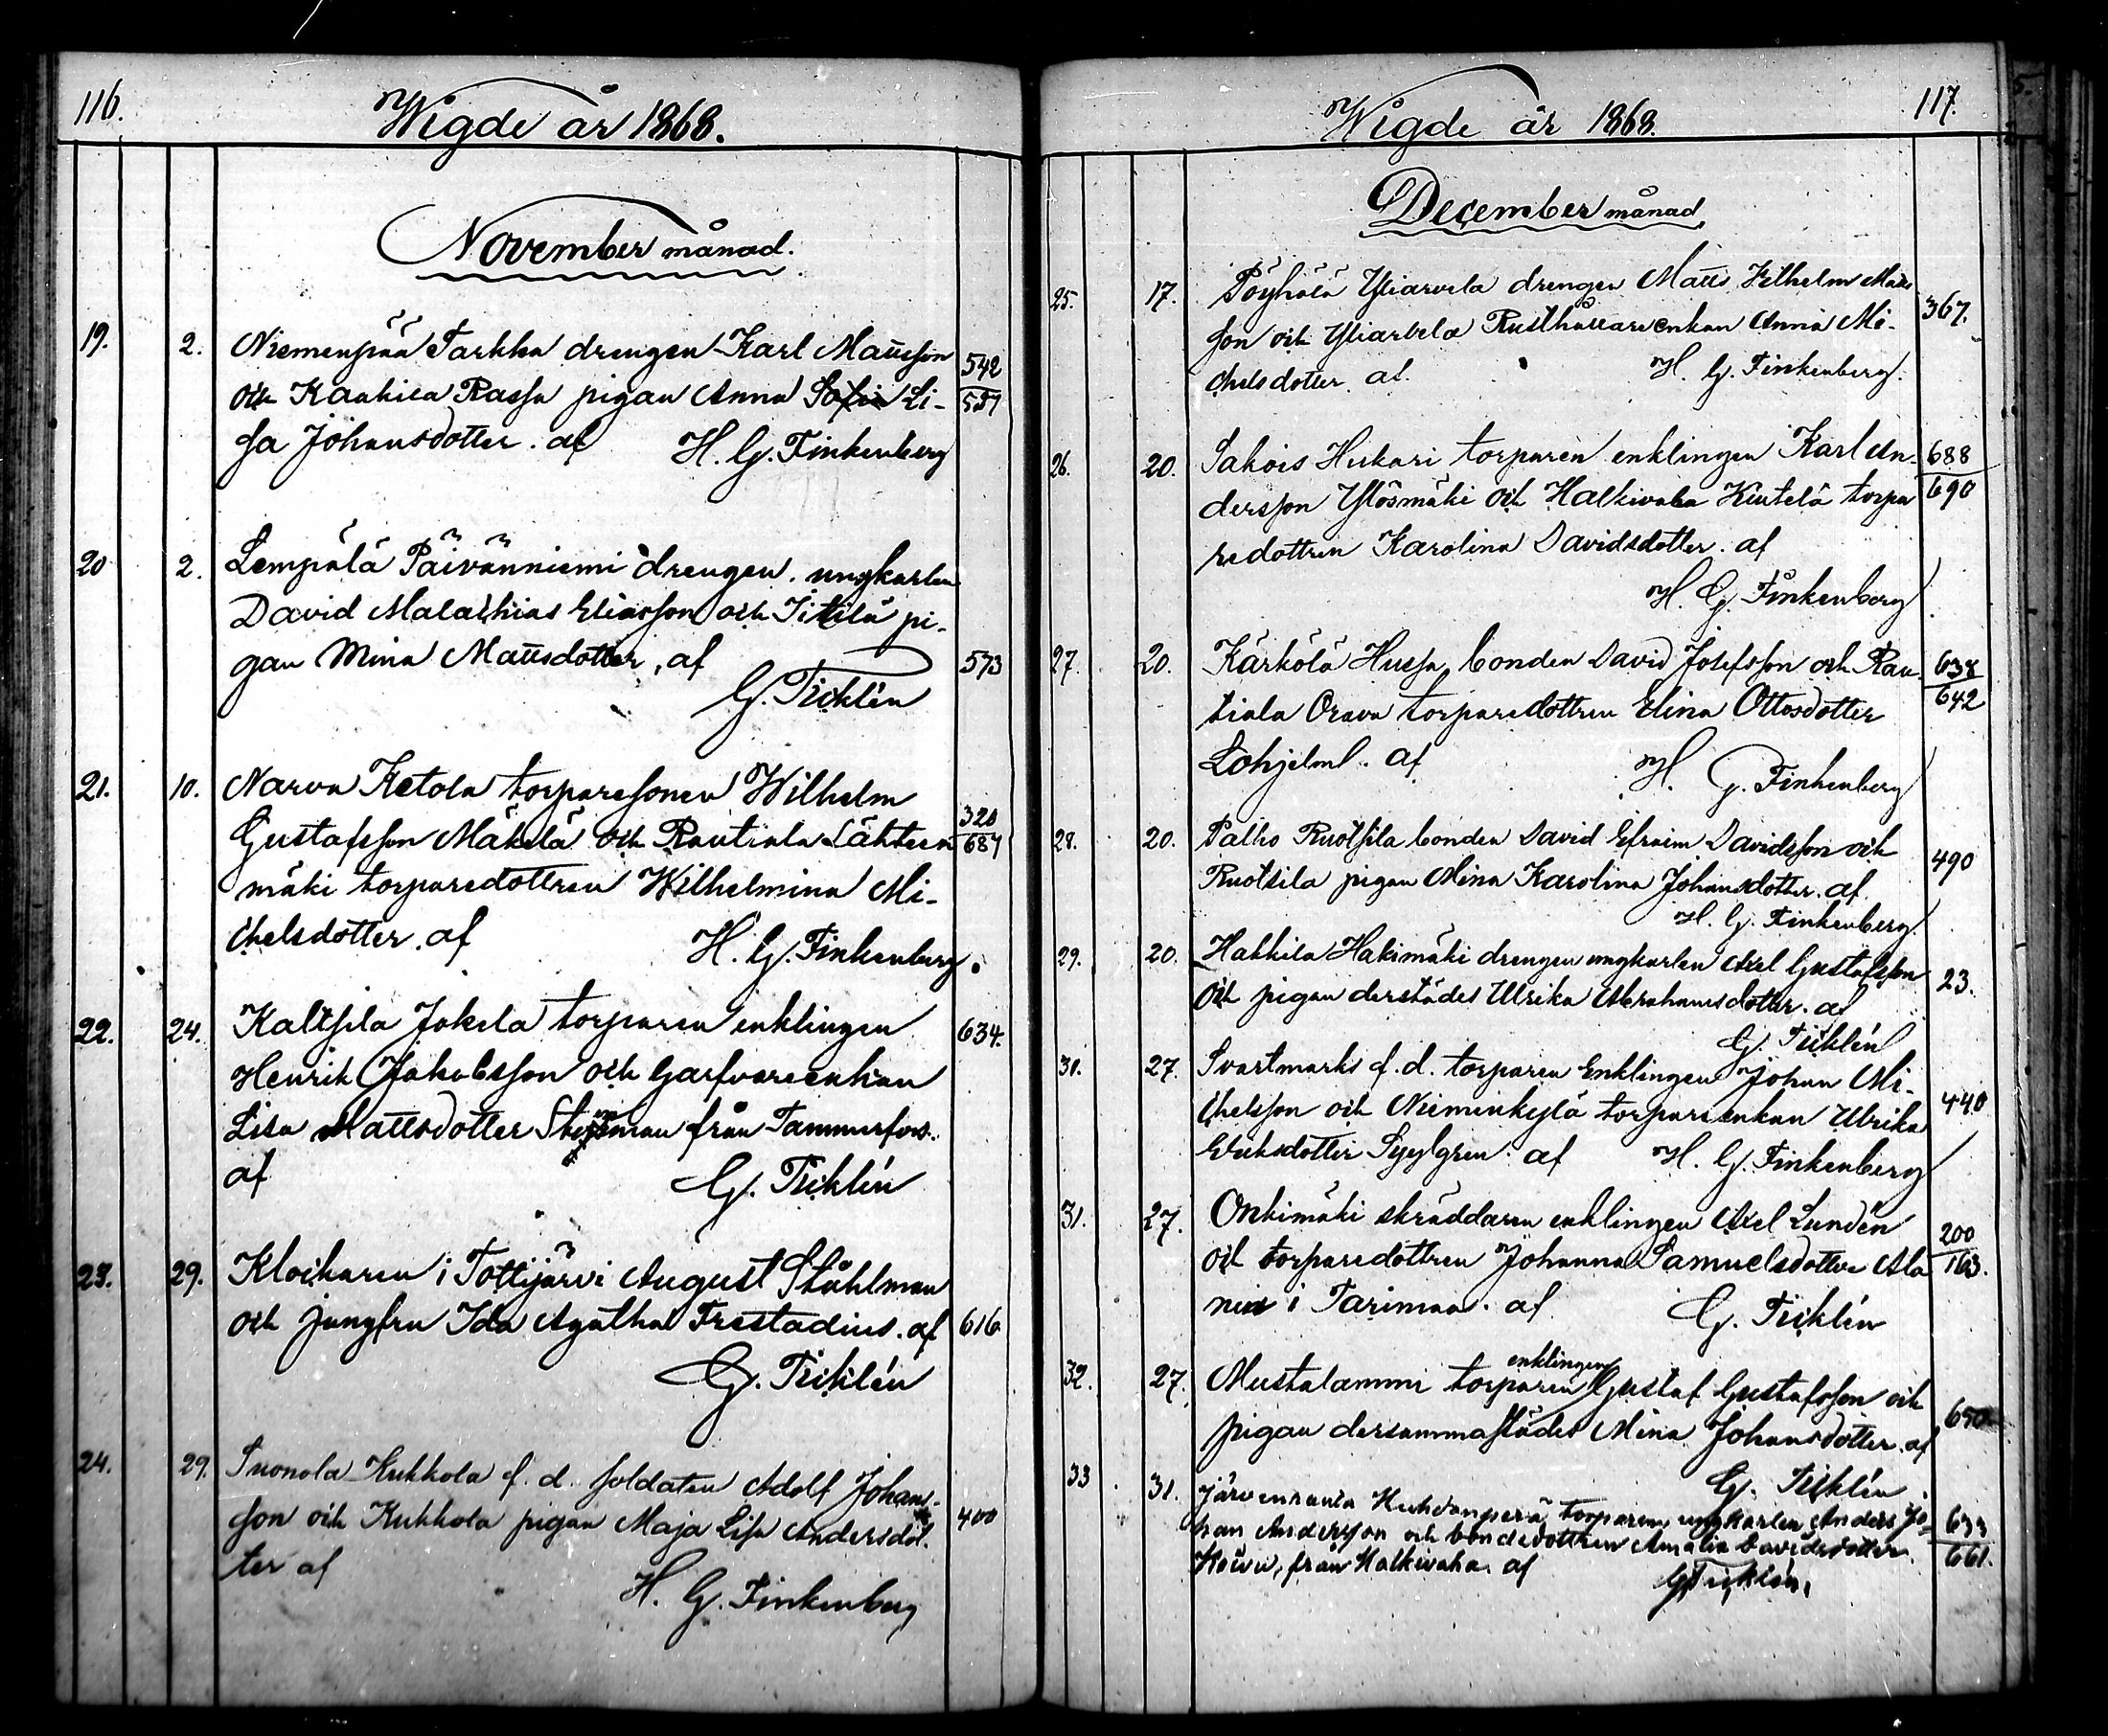 116.
Wigde år 1868.
November månad.
19. 2. Niemenpää Tarkka drengen Karl Mattsson 542
och Kaukila Rassa pigan Anna Sofia Li- 551
sa Johansdotter. af H. G. Finkenberg
20 2. Lempälä Päivänniemi drengen ungkarlen
David Malachias Eliasson och pi-
gan Mina Mattsdotter, af 573
G. Ticklén
21. 10. Narva Ketola torparesonen Wilhelm
Gustafsson Mäkelä och Rautiala Lähteen 320
mäki torparedottren Wilhelmina Mi- 687
chelsdotter. af H. G. Finkenberg.
22. 24. Kaltsila Jokela torparen enklingen 634.
Henrik Jakobsson och Garfvareenkan
Lisa Mattsdotter från Tammerfors.
af G. Ticklén
23. 29. Klockaren i Tottijärvi August Ståhlman
och jungfru Ida Agatha Frestadius. af 616
G. Ticklén
24. 29. Suonola Kukkola f. d. soldaten Adolf Johans-
son och Kukkola pigan Maja Lisa Andersdot- 400
ter af
H. G. Finkenberg
117.
Wigde år 1868.
December månad.
25. 17. Pöyhölä Yliarvela drengen Matts Vilhelm Matts
son och Yliarvela Rusthållareenkan Anna Mi- 367.
chelsdotter. af. H. G. Finkenberg.
26. 20. Sakois Hukari torparen enklingen Karl An- 688
dersson Ylösmäki och Halkivaha Kintelä torpa 690
redottren Karolina Davidsdotter. af
H. G. Finkenberg
27. 20. Kärkölä Hussa bonden David Josefsson och Rau- 638
tiala Orava torparedottren Elina Ottosdotter 642
af H. G. Finkenberg
28. 20. Palho Ruotsila bonden David Efraim Davidsson och
Ruotsila pigan Mina Karolina Johansdotter. af 490
H. G. Finkenberg.
29. 20. Hakkila Hakimäki drengen ungkarlen Axel Gustafsson
och pigan derstädes Ulrika Abrahamsdotter. af 23.
G. Ticklén
30. 27. Svartmarks f. d. torparen Enklingen Johan Mi-
chelsson och Nieminkylä torpareenkan Ulrika 440
Eriksdotter af H. G. Finkenberg
31. 27. Onkimäki skräddaren enklingen Axel Lundén 200
och torparedottren Johanna Samuelsdotter Ala 163.
nen i Tarimaa. af G. Ticklén
enklingen
32. 27. Mustalammi torparen Gustaf Gustafsson och
pigan dersammastädes Mina Johansdotter. af 650
G. Ticklén
33 31. Järvenranta Huhdanperä torparen ungkarlen Anders Jo- 633
han Andersson och bondedottren Amalia Davidsdotter 661.
från Halkivaha. af G Ticklén.